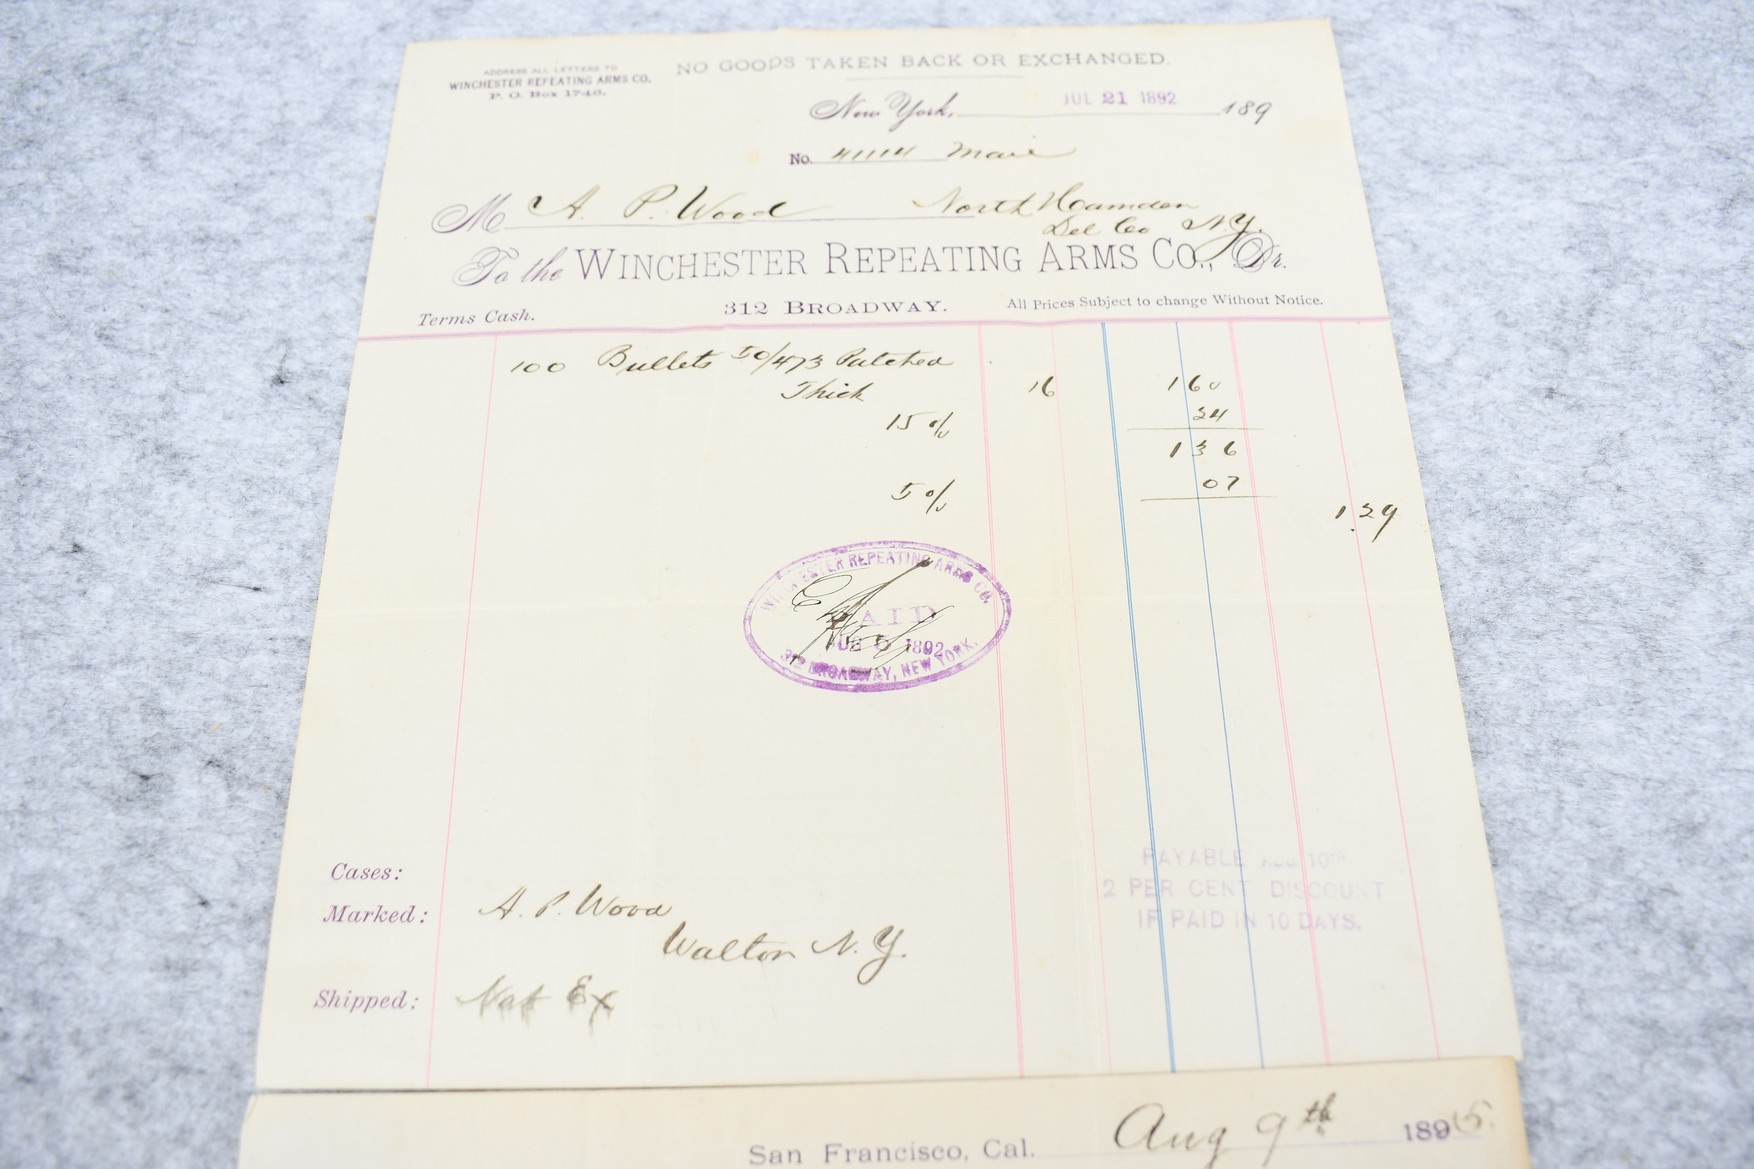 ADDRESS ALL LETTERS TO
WINCHESTER REPEATING ARMS CO.
P. O. Box 1746.
NO GOODS TAKEN BACK OR EXCHANGED.
New York, JUL 21 1892 189
No. 41114
M A. P. Wood North Hamden
Del Co N.Y.
To the WINCHESTER REPEATING ARMS CO., Dr.
Terms Cash. 312 BROADWAY. All Prices Subject to change Without Notice.
100 Bullets 50/473 Patched
Thick 16 160
15 % 24
136
5 % 07
1.29
WINCHESTER REPEATING ARMS CO.
PAID
AUG 1892
312 BROADWAY, NEW YORK.
PAYABLE AUG 10TH
2 PER CENT DISCOUNT
IF PAID IN 10 DAYS.
Cases:
Marked: A. P. Wood
Walton N.Y.
Shipped: Nat Ex
San Francisco, Cal. Aug 9th 1895.